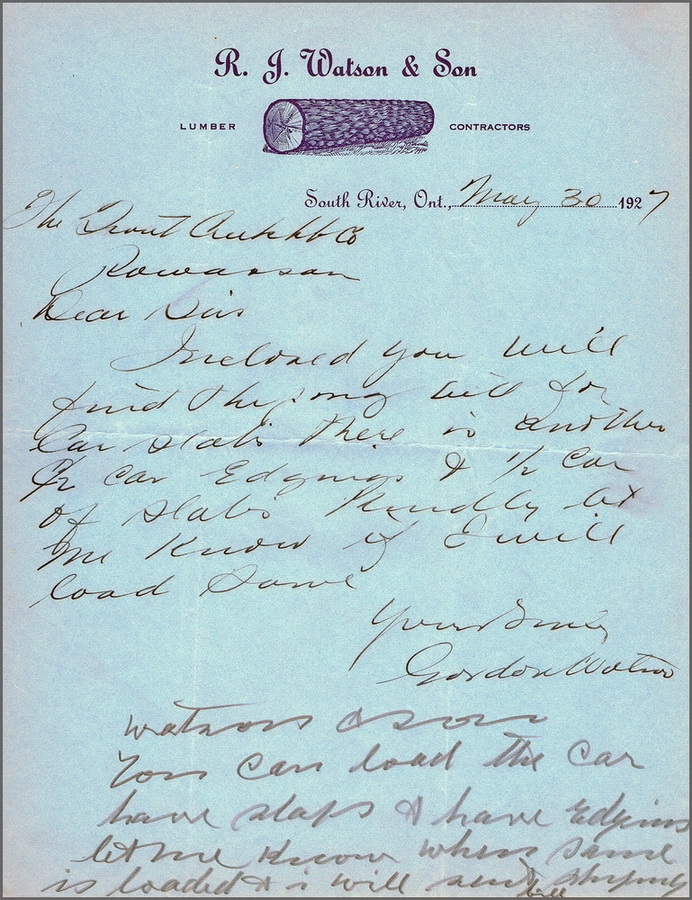 R. J. Watson & Son
LUMBER CONTRACTORS
South River, Ont., May 30 1927
The Trout Creek Co
Dear Sirs
Inclosed you will
find shipping bill for
Car slabs there is another
1/2 car Edgings & 1/2 Car
of slabs Kindly let
me Know if I will
load same
Yours Truly
Gordon Watson
Watson & Son
You can load the car
have slaps & have Edgins
let me Know when same
is loaded & i will send shiping
bill